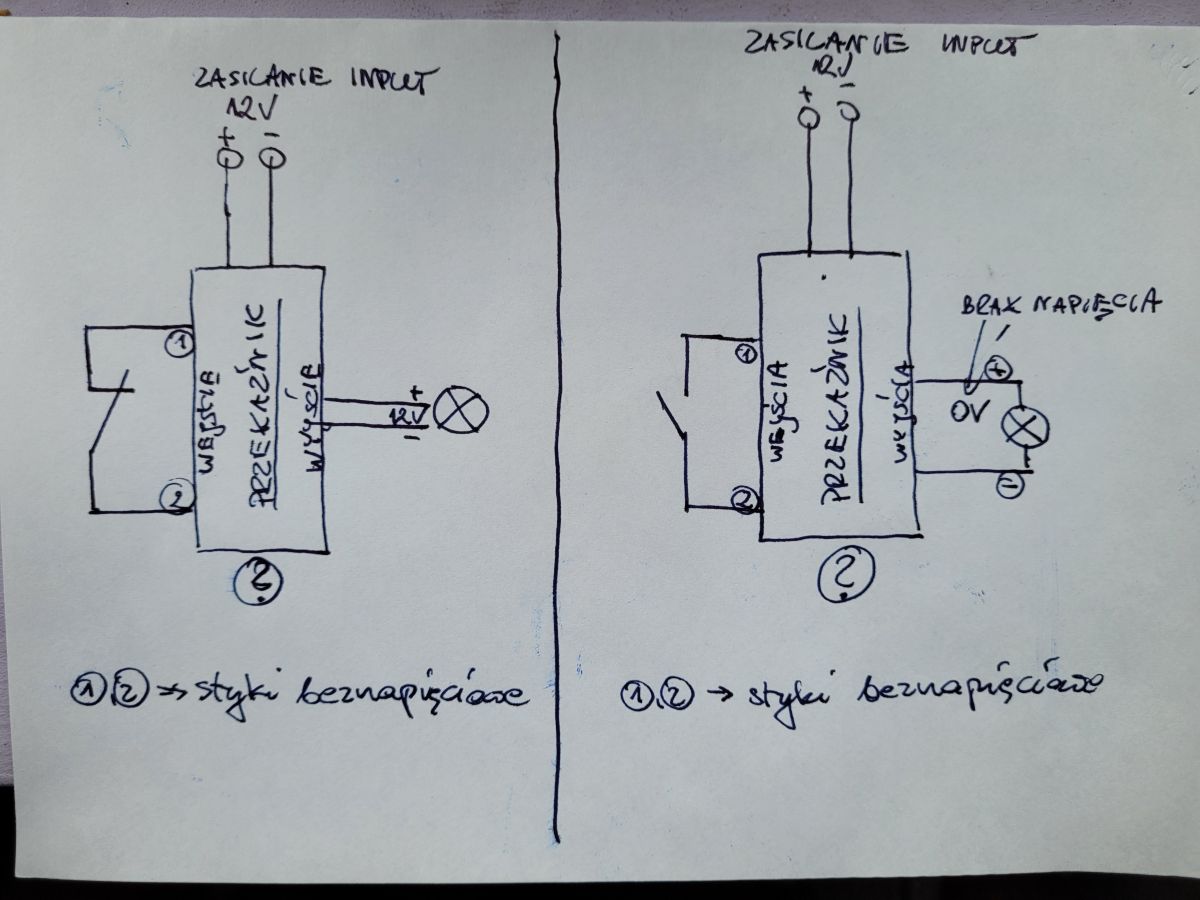 ZASILANIE INPUT
12V
+ -
1
WEJŚCIA
PRZEKAŹNIK
WYJŚCIE
+
12V
-
2
?
1,2 → styki beznapięciowe
ZASILANIE INPUT
12V
+ -
BRAK NAPIĘCIA
1
WEJŚCIA
PRZEKAŹNIK
WYJŚCIA
+
0V
-
2
?
1,2 → styki beznapięciowe